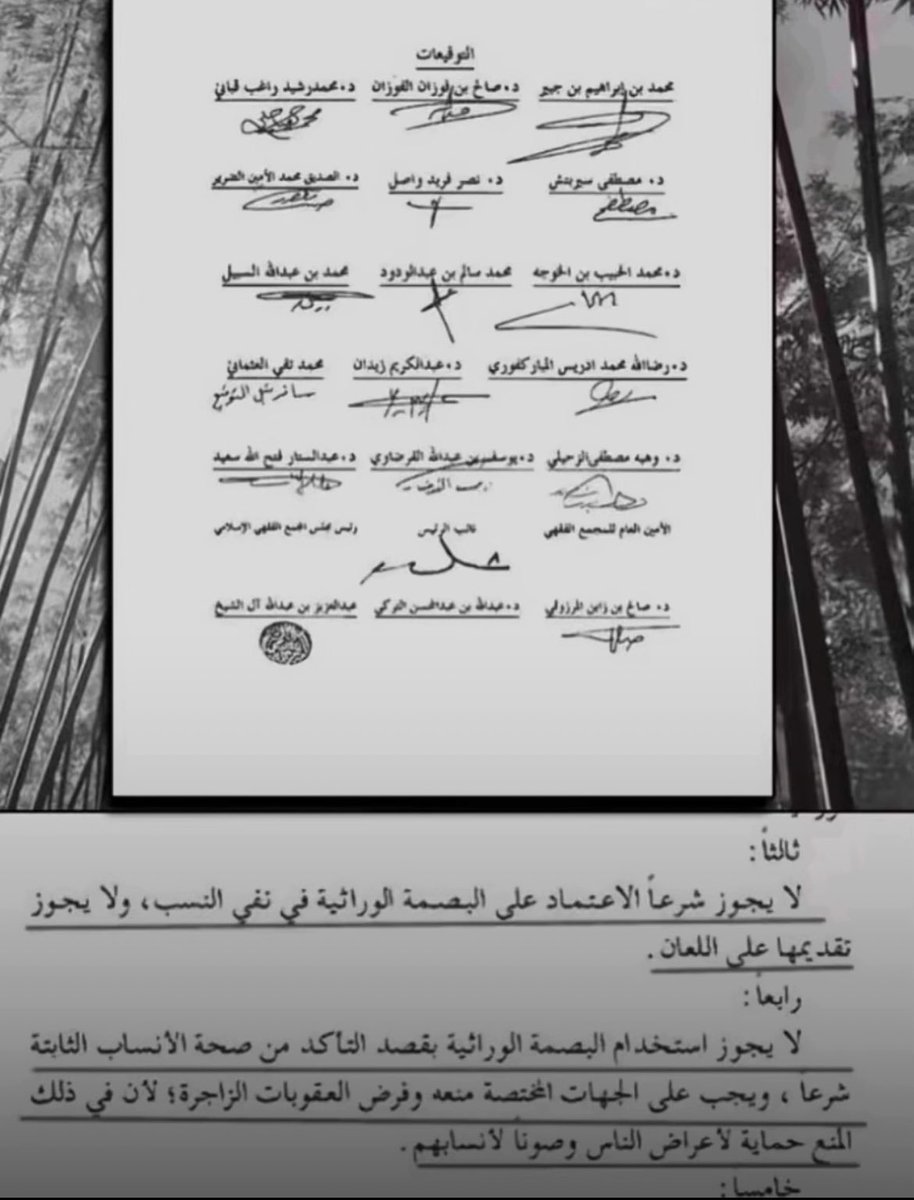 التوقيعات
محمد بن إبراهيم بن جبير د. صالح بن فوزان الفوزان د. محمد رشيد راغب قباني
د. مصطفى سيريتش د. نصر فريد واصل د. الصديق محمد الأمين الضرير
د. محمد الحبيب بن الخوجه محمد سالم بن عبدالودود محمد بن عبدالله السبيل
د. رضاالله محمد ادريس المباركفوري د. عبدالكريم زيدان محمد تقي العثماني
د. وهبه مصطفى الزحيلي د. يوسف بن عبدالله القرضاوي د. عبدالستار فتح الله سعيد
الأمين العام للمجمع الفقهي نائب الرئيس رئيس مجلس المجمع الفقهي الإسلامي
د. صالح بن زابن المرزوقي د. عبدالله بن عبدالمحسن التركي عبدالعزيز بن عبدالله آل الشيخ
ثالثاً:
لا يجوز شرعاً الاعتماد على البصمة الوراثية في نفي النسب، ولا يجوز
تقديمها على اللعان.
رابعاً:
لا يجوز استخدام البصمة الوراثية بقصد التأكد من صحة الأنساب الثابتة
شرعاً، ويجب على الجهات المختصة منعه وفرض العقوبات الزاجرة؛ لأن في ذلك
المنع حماية لأعراض الناس وصوناً لأنسابهم.
خامساً: